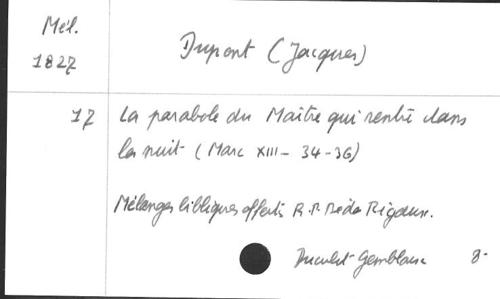 Mél.
1827
Dupont (Jacques)
17
La parabole du Maître qui rentre dans
la nuit (Marc XIII - 34-36)
Mélanges bibliques offerts R.P. Béda Rigaux.
Duculot Gembloux 8-